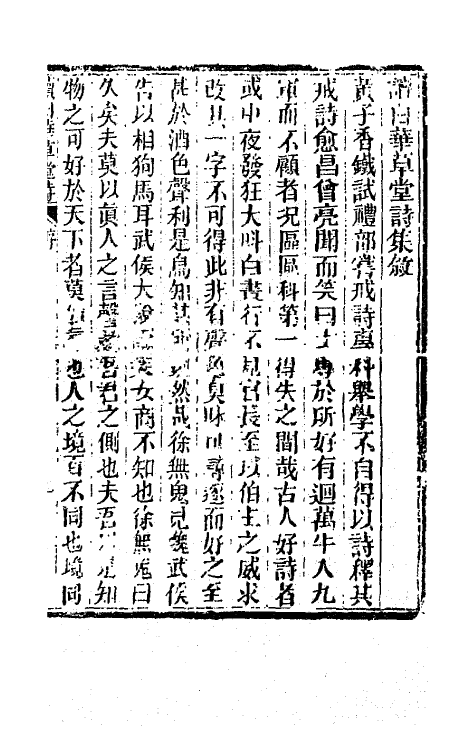 讀白華草堂詩集敘
黃子香鐵試禮部嘗戒詩專科舉學不自得以詩釋其
戒詩愈昌曾亮聞而笑曰士專於所好有迴萬牛人九
軍而不顧者况區區科第一得失之間哉古人好詩者
或中夜發狂大呌白晝行不見官長至以伯王之威求
改其一字不可得此非有聲色臭味可尋逐而好之至
甚於酒色聲利是烏知其然哉徐無鬼見魏武侯
告以相狗馬耳武侯大說女商不知也徐無鬼曰
久矣夫莫以真人之言謦欬吾君之側也夫吾不知
物之可好於天下者莫也人之境百不同也境同
讀白華草堂詩 敘